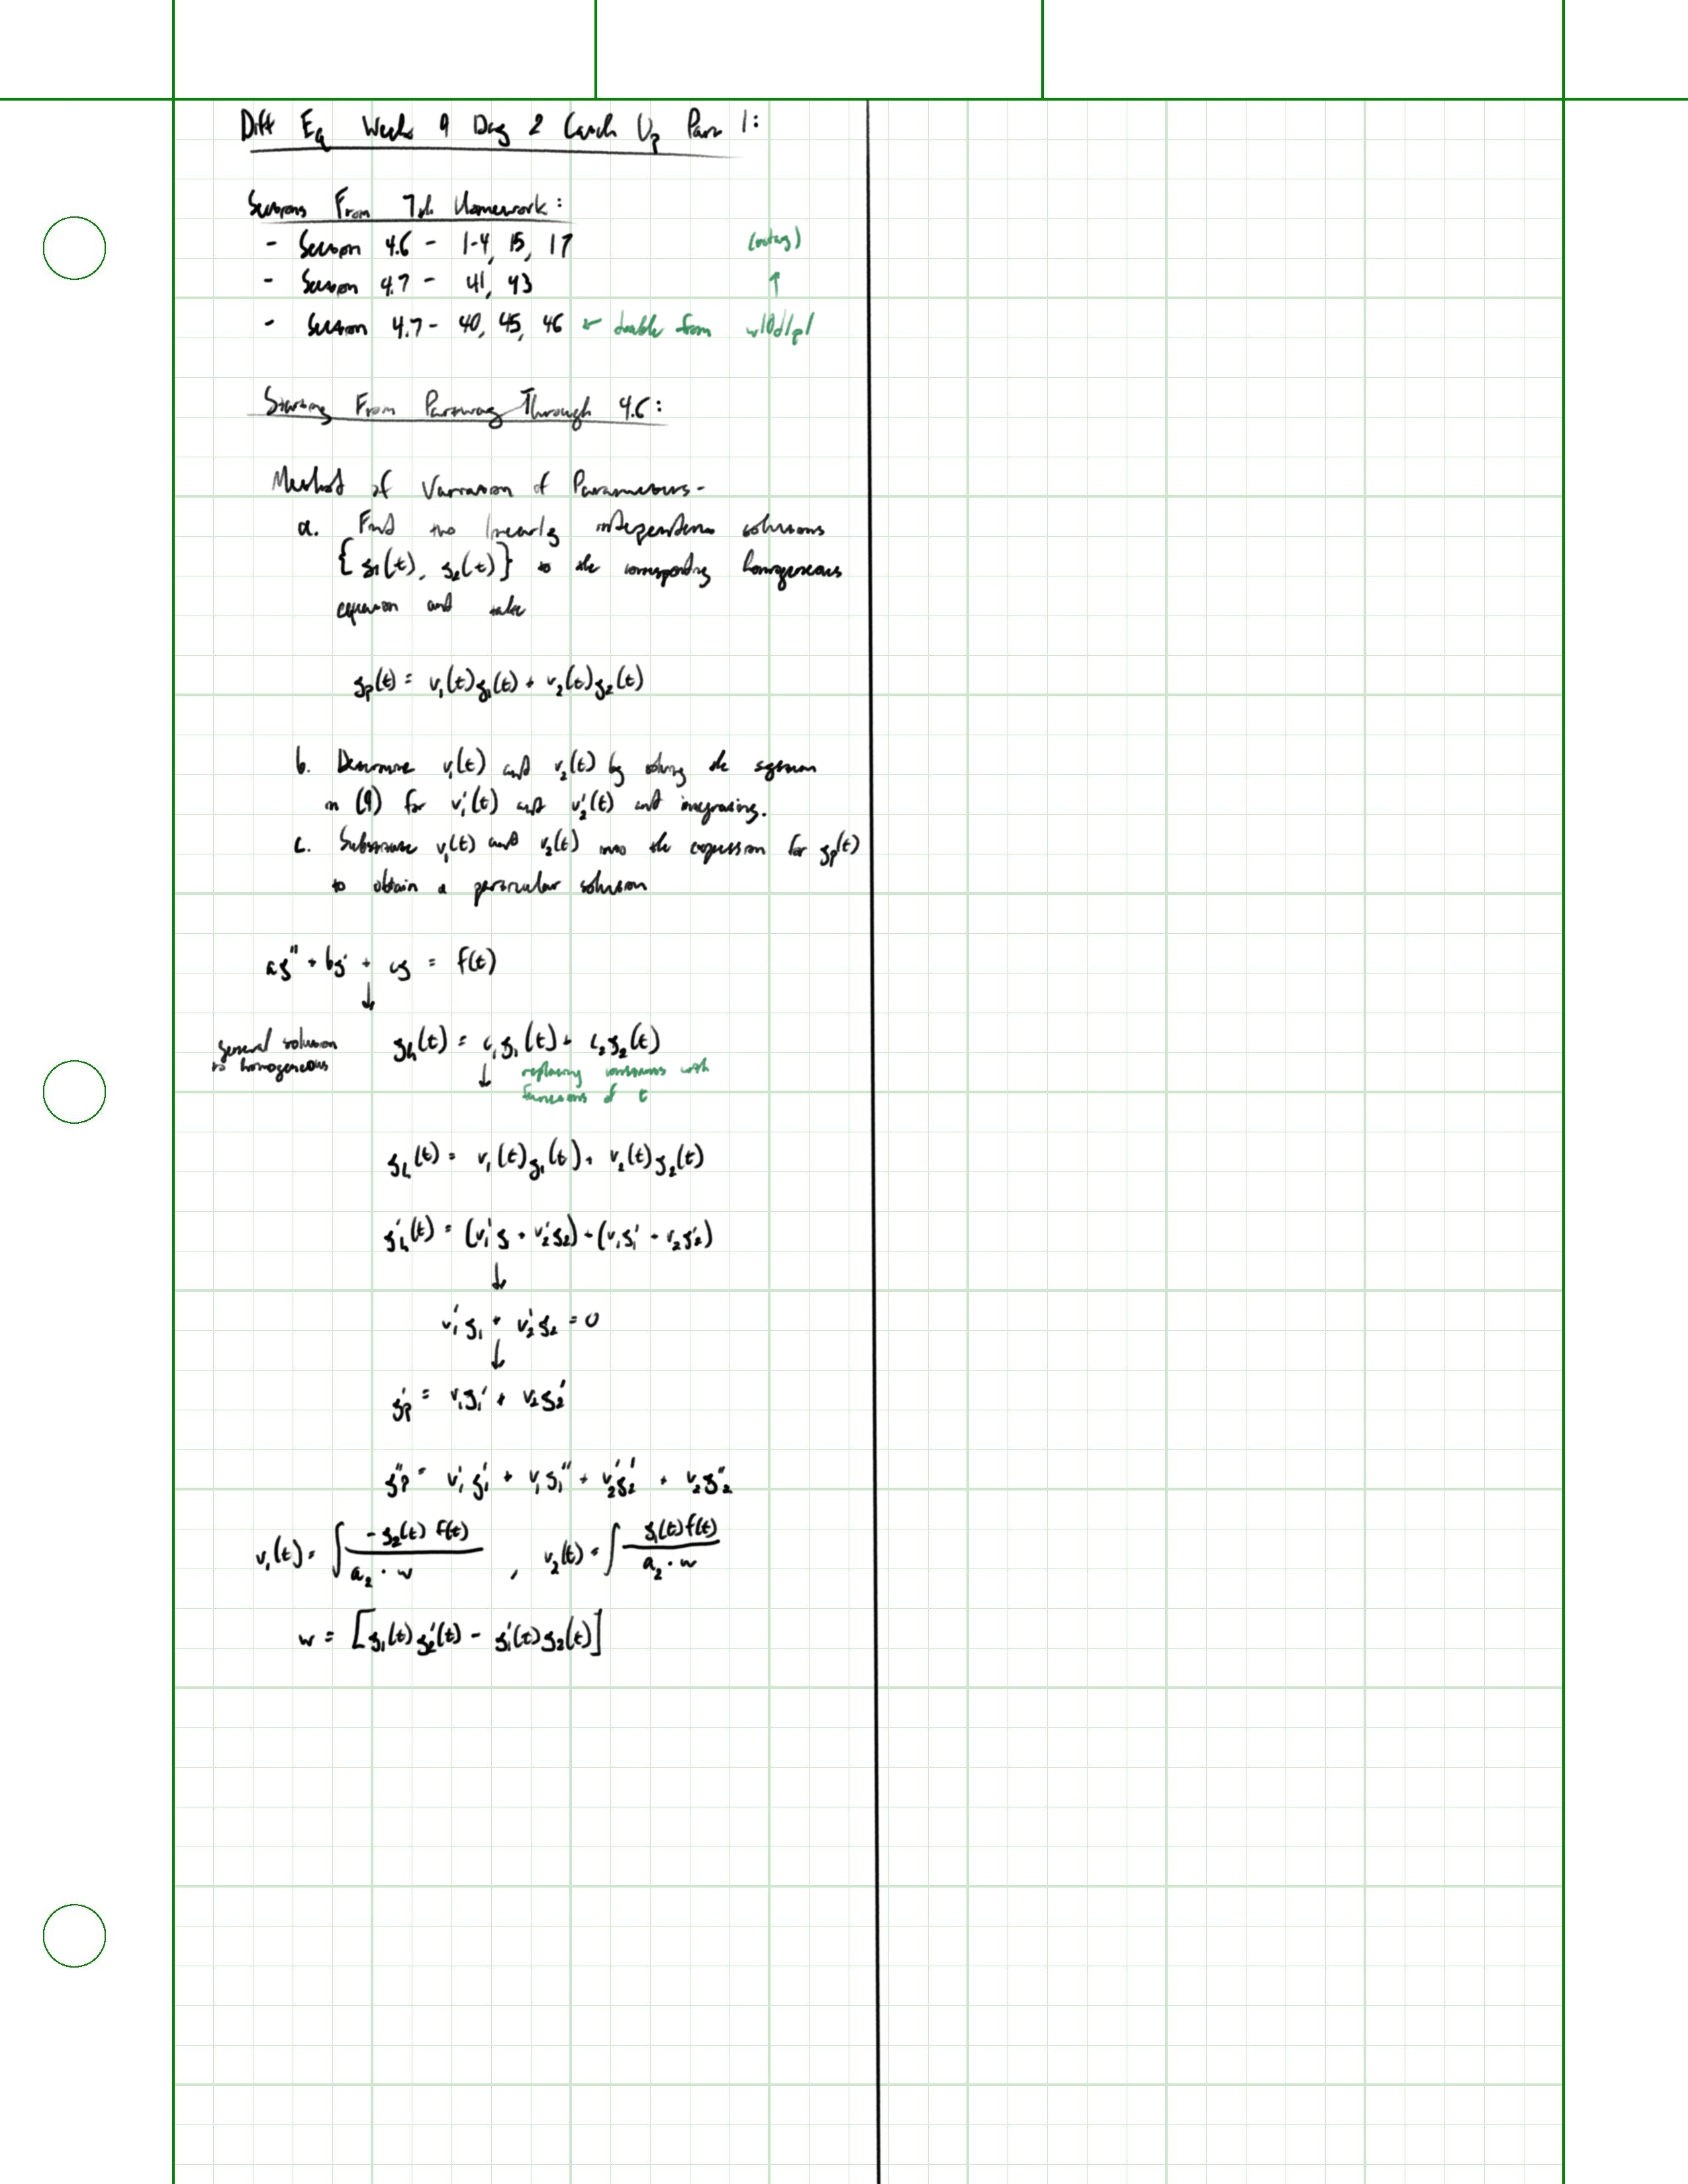 Diff Eq Week 9 Day 2 Catch Up Part 1:
Sections From 7th Homework:
- Section 4.6 - 1-4, 15, 17
(today)
- Section 4.7 - 41, 43
↑
- Section 4.7 - 40, 45, 46 ← doable from w10d1p1
Starting From Partway Through 4.6:
Method of Variation of Parameters-
a. Find two linearly independent solutions
{y₁(t), y₂(t)} to the corresponding homogeneous
equation and take
yp(t) = v₁(t)y₁(t) + v₂(t)y₂(t)
b. Determine v₁(t) and v₂(t) by solving the system
in (9) for v₁'(t) and v₂'(t) and integrating.
c. Substitute v₁(t) and v₂(t) into the expression for yp(t)
to obtain a particular solution
ay'' + by' + cy = f(t)
↓
general solution
to homogeneous
yh(t) = c₁y₁(t) + c₂y₂(t)
↓ replacing constants with
functions of t
yh(t) = v₁(t)y₁(t) + v₂(t)y₂(t)
y'h(t) = (v₁'y₁ + v₂'y₂) + (v₁y₁' + v₂y₂')
↓
v₁'y₁ + v₂'y₂ = 0
↓
y'p = v₁y₁' + v₂y₂'
y''p = v₁'y₁' + v₁y₁'' + v₂'y₂' + v₂y₂''
v₁(t) = ∫ -y₂(t) f(t) / a₂ · w , v₂(t) = ∫ y₁(t) f(t) / a₂ · w
w = [y₁(t)y₂'(t) - y₁'(t)y₂(t)]